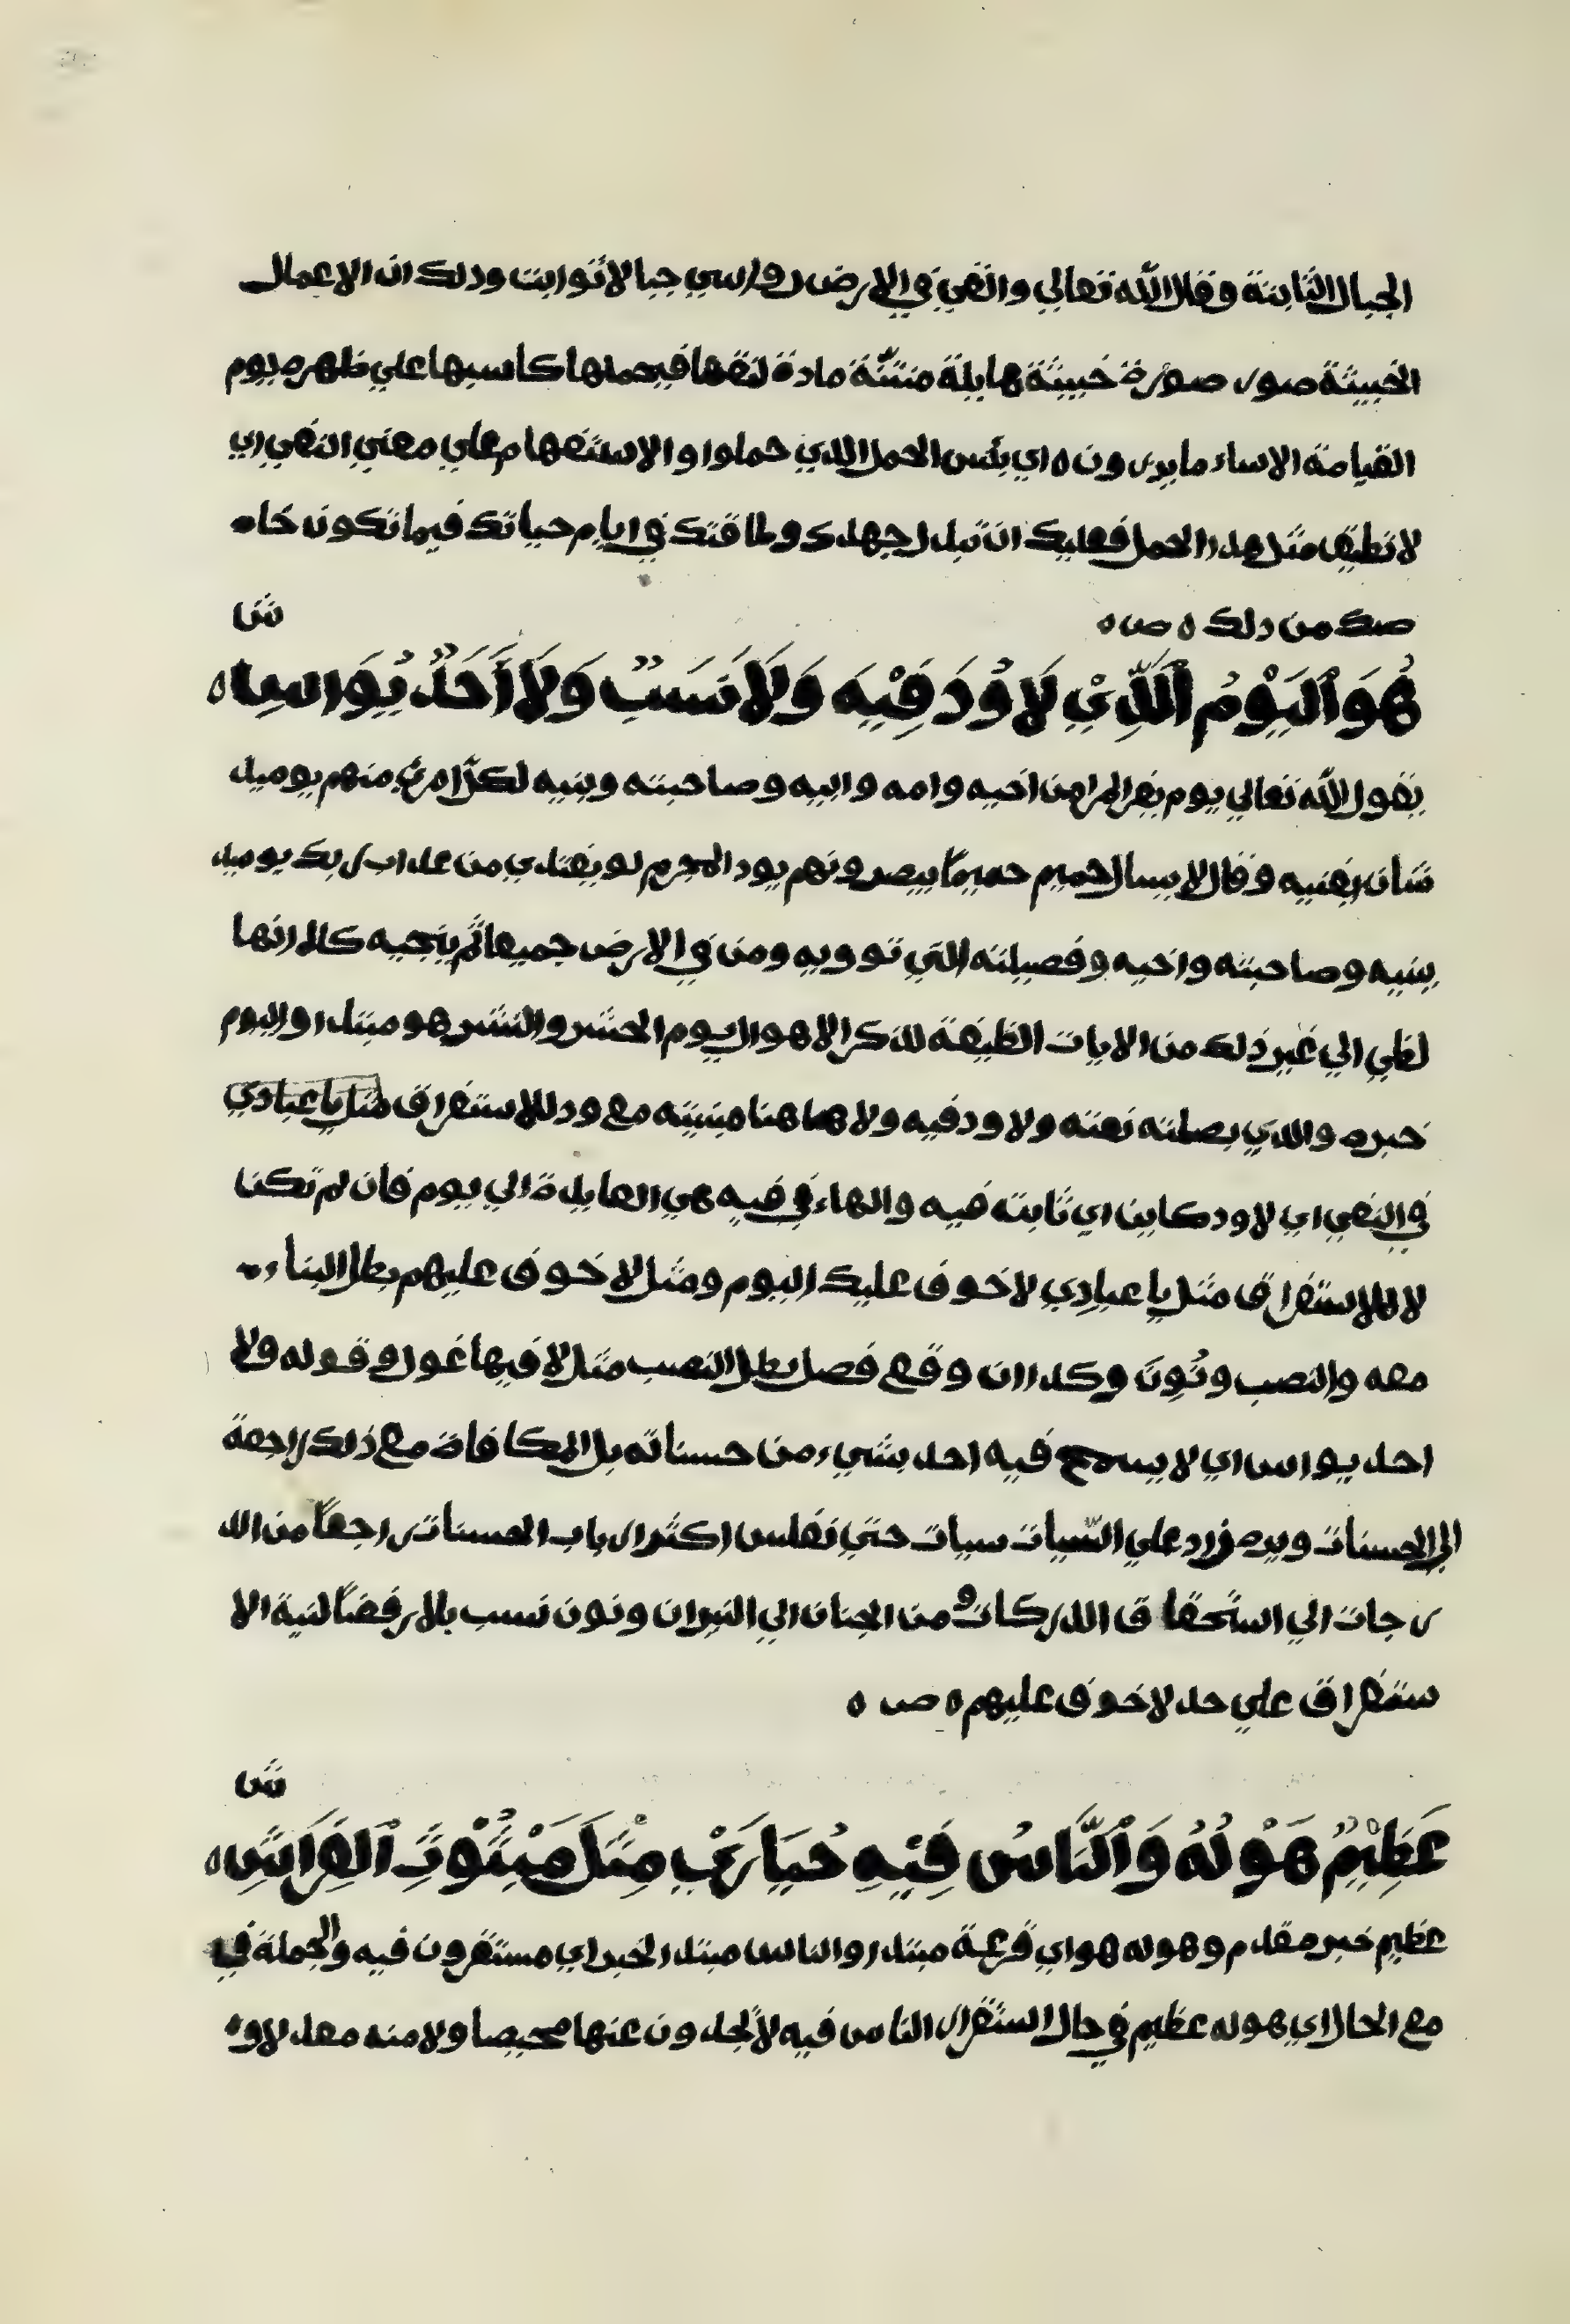 الجبال الثابتة وقال الله تعالي والقي في الارض رواسي جبالا ثوابت ودلك ان الاعمال
الخبيثة صور صورة خبيثة هايلة منتنة مادة لثقها فيحملها كاسبها علي ظهره يوم
القيامة الاساء ما يزرون ٥ اي بئس الحمل الذي حملوا والاستفهام علي معني النفي اي
لا تطيق مثل هدا الحمل فعليك ان تبدل جهدك وطاقتك في ايام حياتك فيما تكون خلا
صك من دلك ٥ ص ٥
ش
هُوَ ٱلْيَوْمُ ٱلَّذِيْ لَا وُدَ فِيْهَ وَلَا نَسَبٌ وَلَا أَحَدٌ يُوَاسِاه
يقول الله تعالي يوم يفر المرا من اخيه وامه وابيه وصاحبته وبنيه لكل امرئ منهم يوميد
شان يغنيه وقال لا يسال حميم حميمًا يبصرونهم يود المجرم لو يفتدي من عداب ربك يوميد
ببنيه وصاحبته واخيه وفصيلته التي توويه ومن في الارض جميعا ثم ينجيه كلا انها
لظي الي غير ذلك من الايات لذكر الاهوال يوم الحشر والنشر هو مبتدا واليوم
خبره والدي بصلته نعته ولا ود فيه ولا هاهنا مبنيته مع ود للاستغراق مثل يا عبادي
في النفي اي لا ود كاين اي ثابت فيه والهاء في فيه هي العايدة الي يوم فان لم تكن
لا للاستغراق مثل يا عبادي لا خوف عليك اليوم ومثل لا خوف عليهم بطل البناء
معه والنصب ونُوِنَ وكدا ان وقع فصل بطل النصب مثل لا فيها غول وقوله ولا
احد يواس اي لا يسمح فيه احد بشيء من حسناته بل المكافاة مع ذلك راجعة
الي الحسنات علي السّيات سيات حتي تفلس اكثر ارباب الحسنات راجعًا من الد
رجات الي استحقاق الدركات من الجنان الي النيران ونون نسب بالا رفعًا لنية الا
ستغراق علي حد لا خوف عليهم ٥ ص ٥
ش
عَظِيْمٌ هَوْلُهُ وَٱلنَّاسُ فِيْهِ حُيَارَيْ مِثْلَ مَبْثُوْثِ ٱلْفِرَاشِ ٥
عظيم خبر مقدم وهوله هو اي مبتدا والناس مبتدا الخبر اي مستقرون فيه والجملة في
مع الحال اي هوله عظيم في حال استقرار الناس فيه لا يجدون عنها محيصا ولا منه معدلا وه